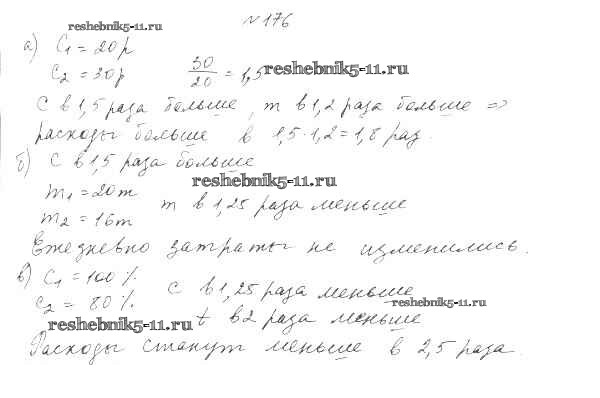 №176
reshebnik5-11.ru
а) C₁ = 20р
C₂ = 30р 30/20 = 1,5 reshebnik5-11.ru
C в 1,5 раза больше, m в 1,2 раза больше =>
расходы больше в 1,5·1,2=1,8 раз.
б) C в 1,5 раза больше
reshebnik5-11.ru
m₁ = 20т
m в 1,25 раза меньше
m₂ = 16т
Ежедневно затраты не изменились.
в) C₁ = 100%
C в 1,25 раза меньше
C₂ = 80%
reshebnik5-11.ru
reshebnik5-11.ru t в 2 раза меньше
Расходы станут меньше в 2,5 раза.